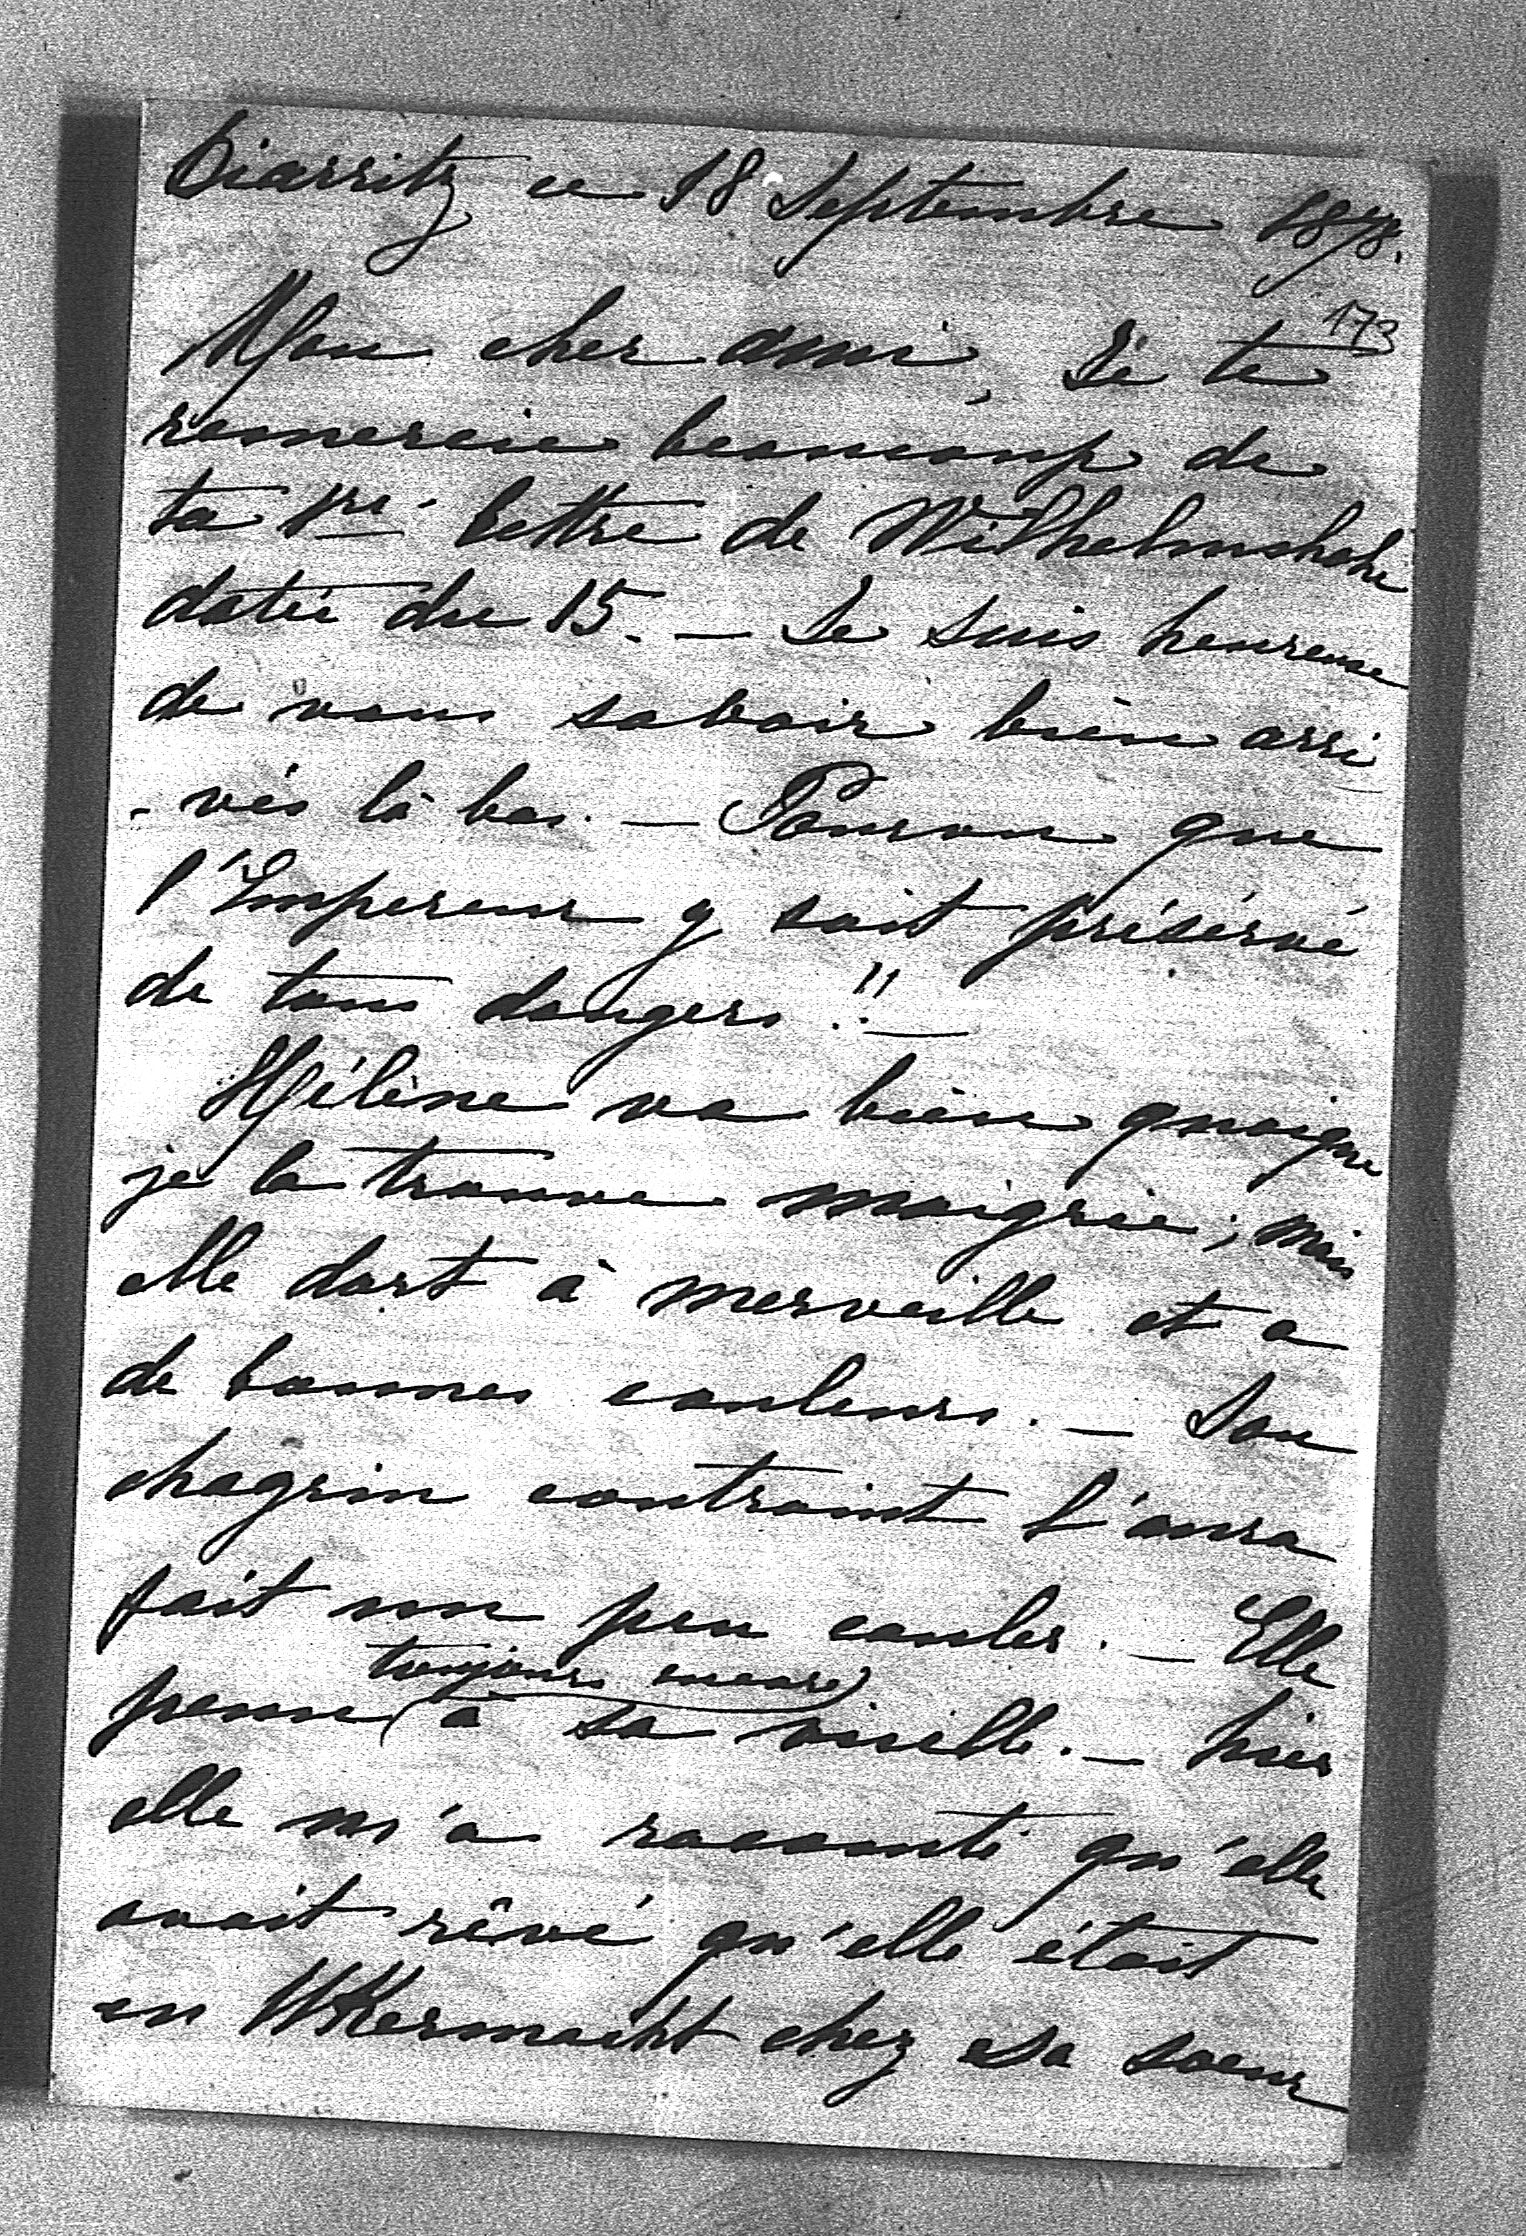 Biarritz ce 18 Septembre 1878.
173
Mon cher ami, Je te
remercie beaucoup de
ta 1re. lettre de Wilhelmshohe
datée du 15. — Je suis heureuse
de vous savoir bien arri
-vés là bas. — Pourvu que
l'Empereur y soit préservé
de tous dangers!! —
Hélène va bien quoique
je la trouve maigrie; mais
elle dort à merveille et a
de bonnes couleurs. — Son
chagrin contraint l'aura
fait un peu couler. — Elle
toujours encore
pense à sa vieille. — hier
elle m'a raconté qu'elle
avait rêvé qu'elle était
en Ukermarkt chez sa soeur